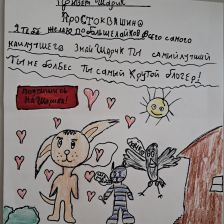 Привет Шарик
Простоквашино
Я тебе желаю побольше лайков, всего самого
наилучшего. Знай Шарик ты самый лучший
Ты не балбес ты самый крутой блогер!
Подпишись
на Шарика!